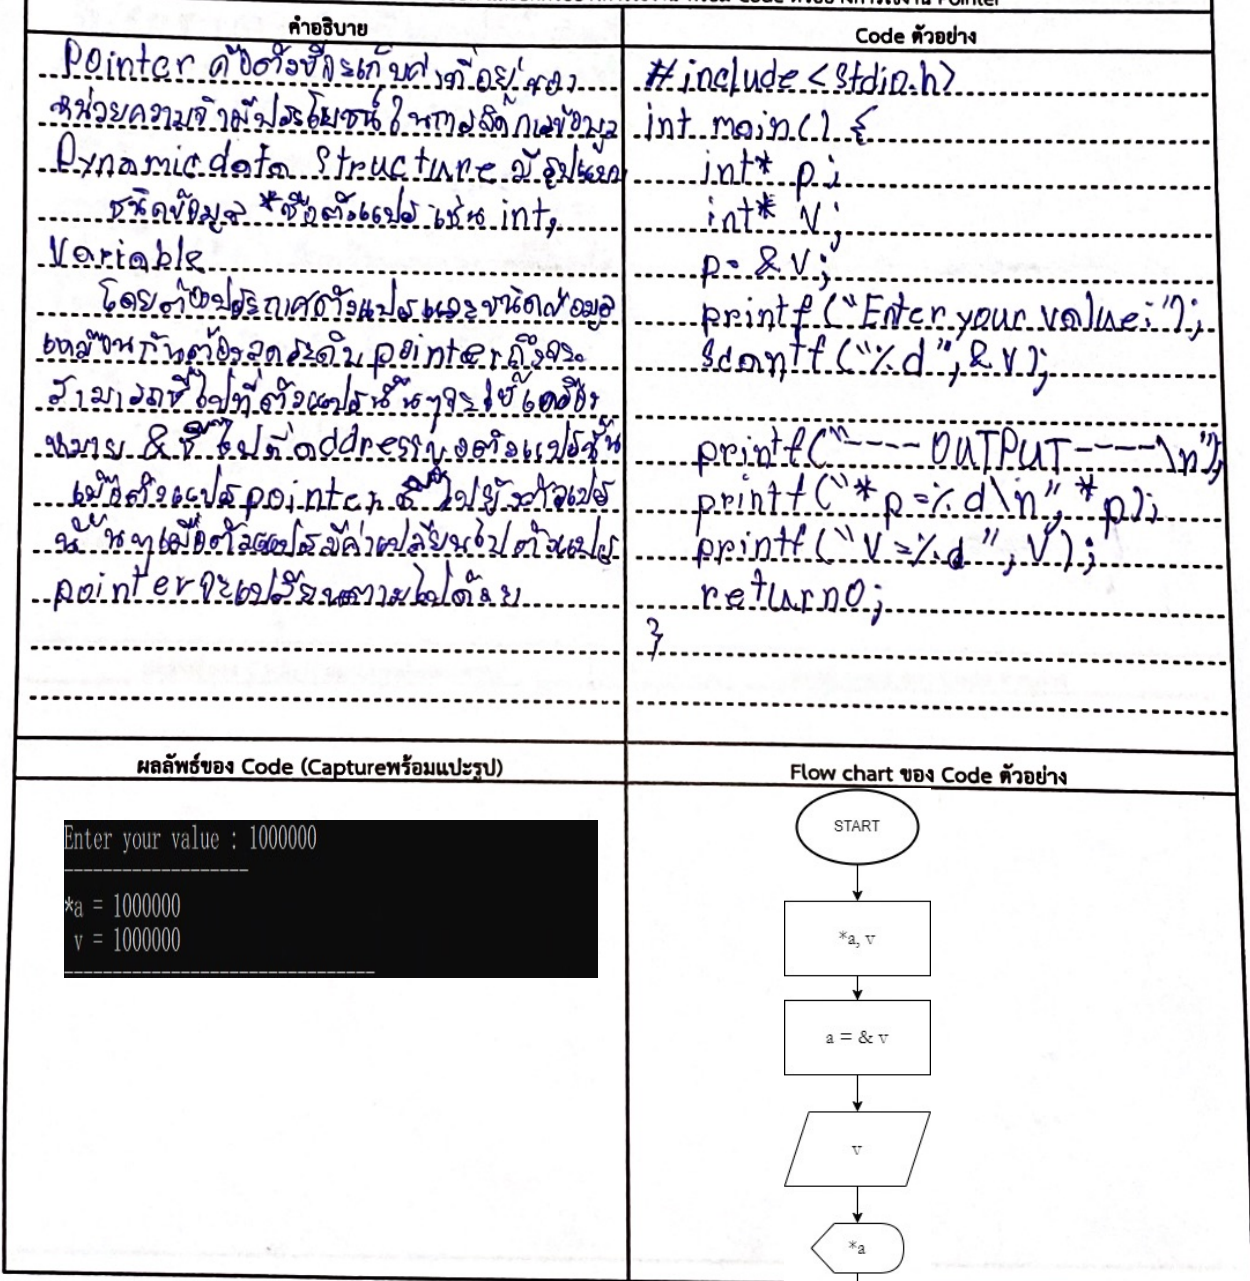 คำอธิบาย
Pointer คือตัวชี้จะเก็บค่าที่อยู่ของ
หน่วยความจำมีประโยชน์ในการจัดการข้อมูล
Dynamic data Structure มีรูปแบบ
ชนิดข้อมูล *ชื่อตัวแปร เช่น int,
Variable
โดยต้องประกาศตัวแปรและชนิดข้อมูล
เหมือนกันต้องลดระดับ pointer ถึงจะ
สามารถชี้ไปที่ตัวแปรนั้นๆจะใช้เครื่อง
หมาย & ชี้ไปที่ addressของตัวแปรนั้น
เมื่อตัวแปร pointer ชี้ไปยังตัวแปร
นั้นๆเมื่อตัวแปรมีค่าเปลี่ยนไปตัวแปร
pointer จะเปลี่ยนตามไปด้วย
Code ตัวอย่าง
#include <stdio.h>
int main() {
int* p;
int* v;
p = &v;
printf("Enter your value:");
scanf("%d", &v);
printf("---- OUTPUT ----\n");
printf("*p =%d\n", *p);
printf("v =%d", v);
return 0;
}
ผลลัพธ์ของ Code (Captureพร้อมแปะรูป)
Enter your value : 1000000
-------------------
*a = 1000000
v = 1000000
--------------------------------
Flow chart ของ Code ตัวอย่าง
START
*a, v
a = & v
v
*a